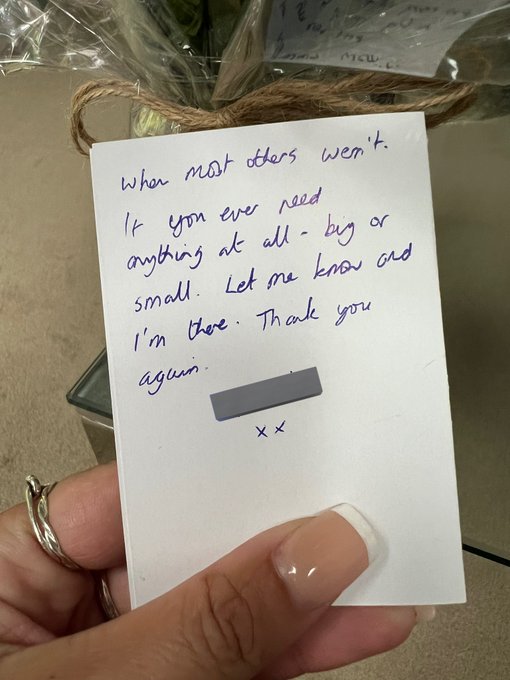 when most others weren't.
If you ever need
anything at all - big or
small. Let me know and
I'm there. Thank you
again.
x x